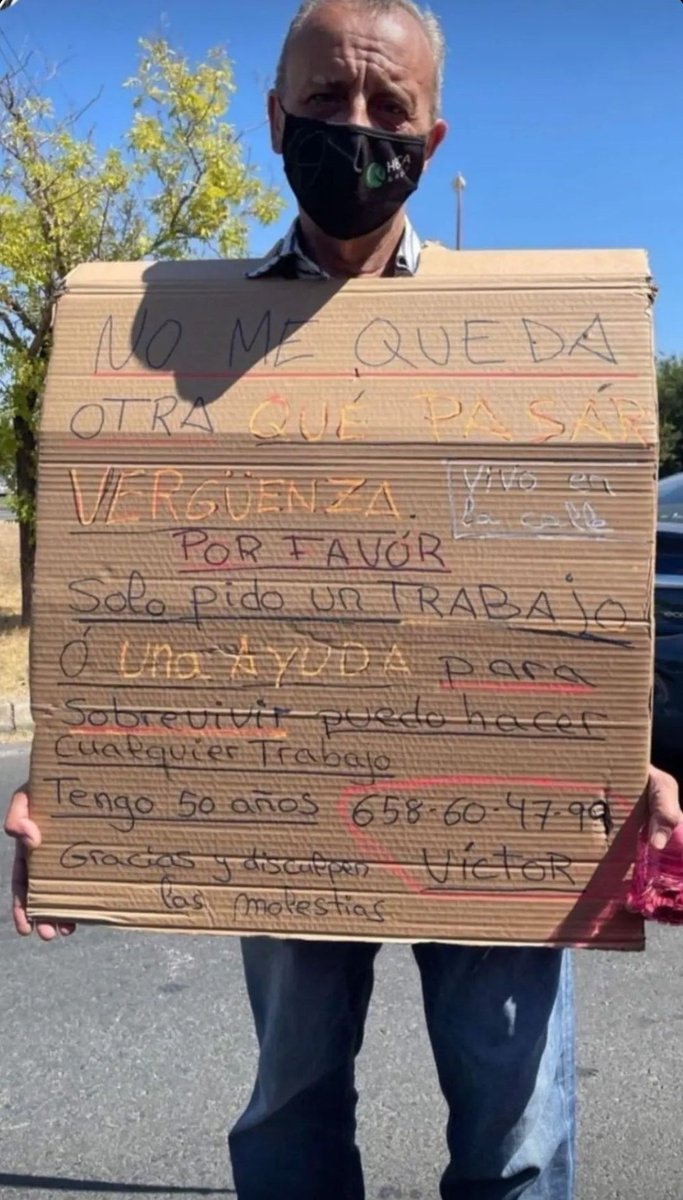 HECA
NO ME QUEDA
OTRA QUÉ PASÁR
VERGÜENZA.
vivo en
la calle
POR FAVÓR
Solo pido un TRABAJO
Ó una AYUDA para
Sobrevivir puedo hacer
Cualquier Trabajo
Tengo 50 años 658-60-47-99
Gracias y disculpen VíCTOR
las molestias